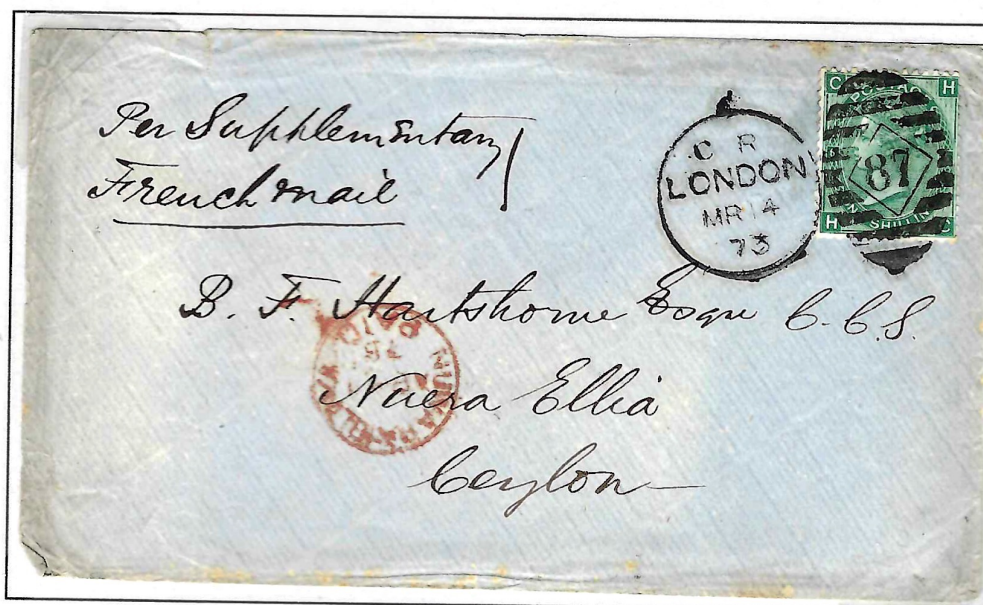 Per Supplementary
French mail
C R
LONDON
MR 14
73
C H
POSTAGE
87
H SHILLING C
B. F. Hartshorne Esqre C. C. S.
Nuera Ellia
Ceylon
PAID